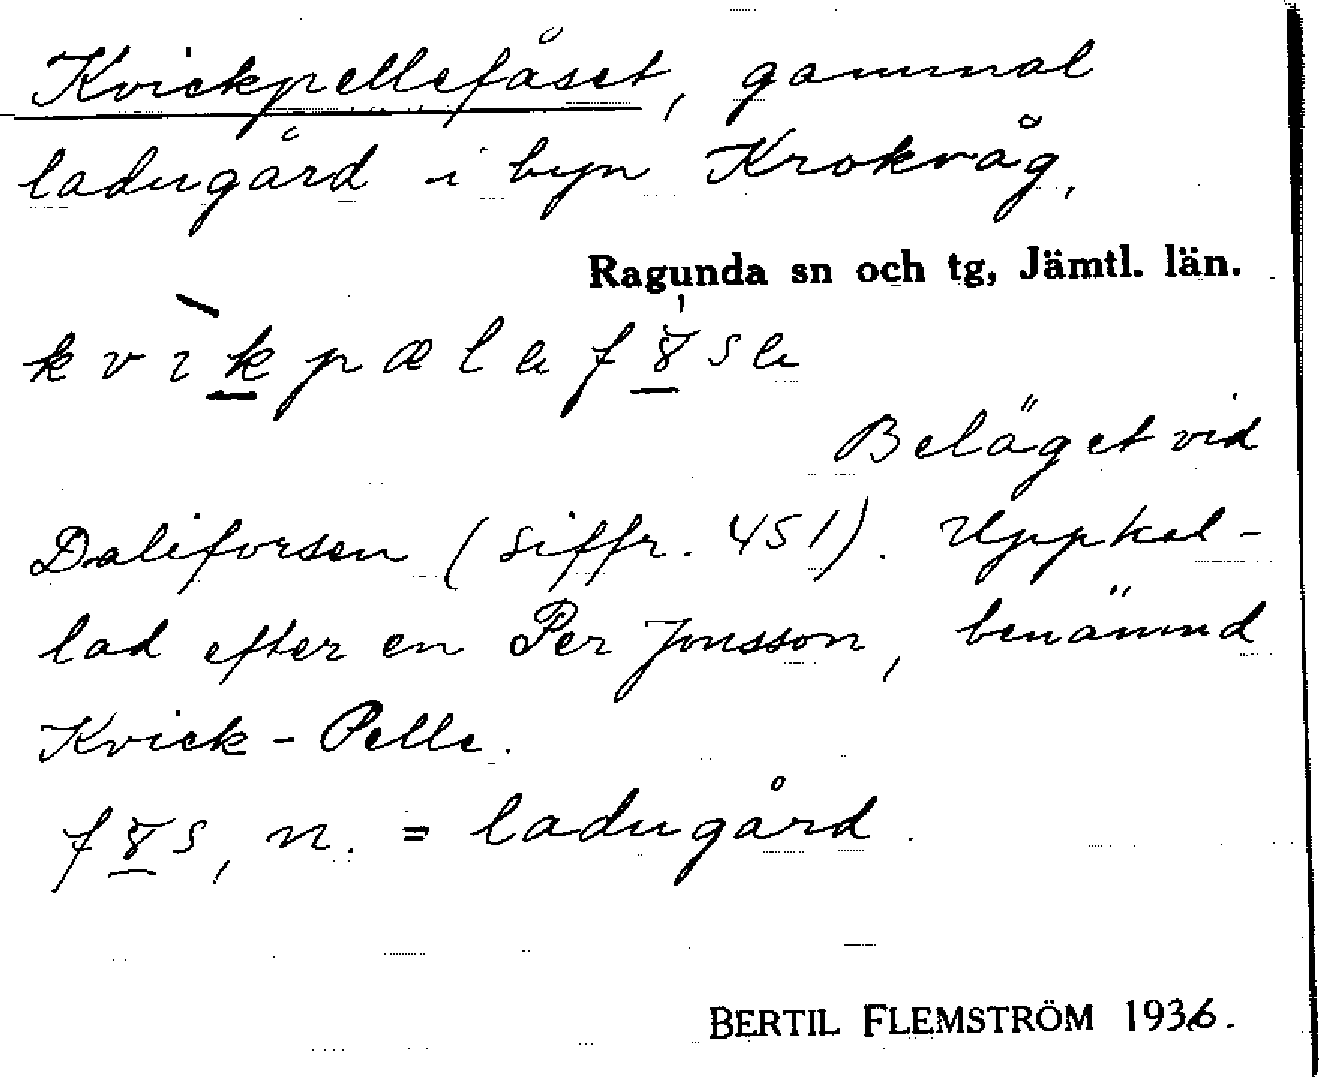 Kvickpellefåset, gammal
ladugård i byn Krokvåg,
Ragunda sn och tg, Jämtl. län.
Beläget vid
Daliforsen (siffr. 451). Uppkal-
lad efter en Per Jonsson, benämnd
Kvick-Pelle.
n. = ladugård.
BERTIL FLEMSTRÖM 1936.